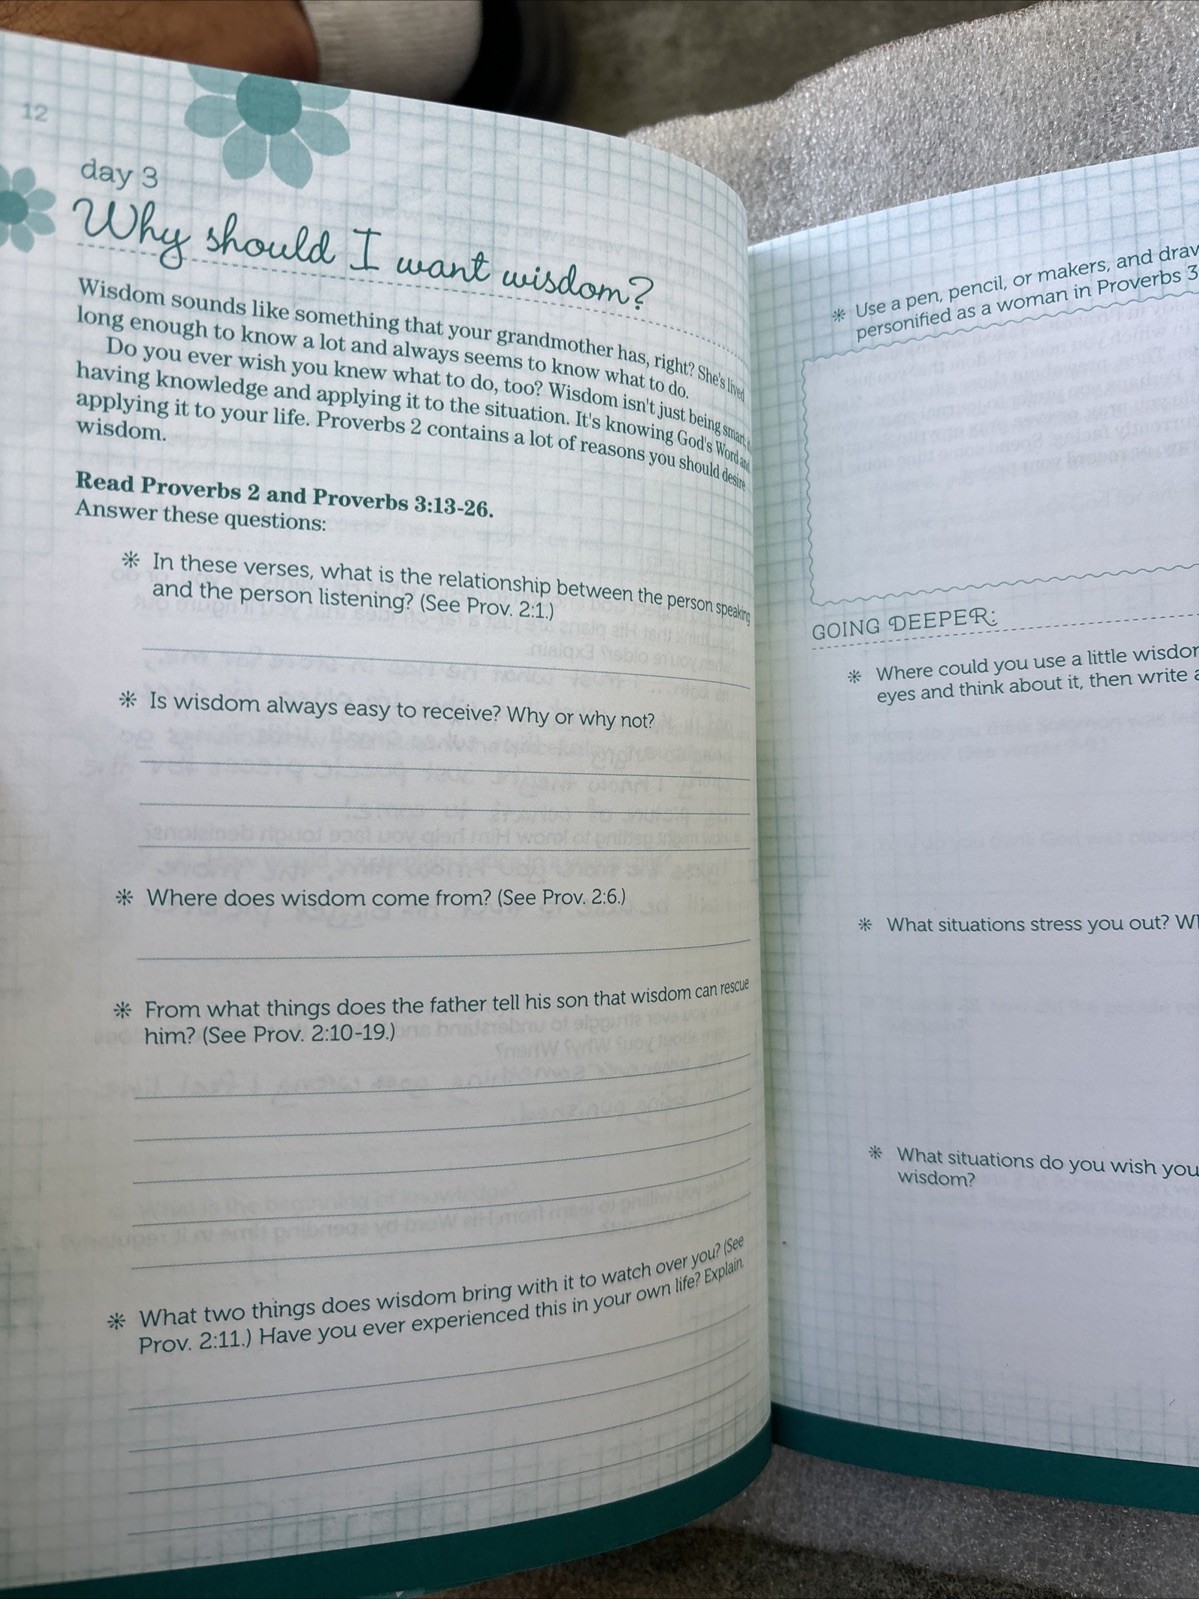 12
day 3
Why should I want wisdom?
Wisdom sounds like something that your grandmother has, right? She's lived
long enough to know a lot and always seems to know what to do.
Do you ever wish you knew what to do, too? Wisdom isn't just being smart,
having knowledge and applying it to the situation. It's knowing God's Word and
applying it to your life. Proverbs 2 contains a lot of reasons you should desire
wisdom.
Read Proverbs 2 and Proverbs 3:13-26.
Answer these questions:
* In these verses, what is the relationship between the person speaking
and the person listening? (See Prov. 2:1.)
* Is wisdom always easy to receive? Why or why not?
* Where does wisdom come from? (See Prov. 2:6.)
* From what things does the father tell his son that wisdom can rescue
him? (See Prov. 2:10-19.)
* What two things does wisdom bring with it to watch over you? (See
Prov. 2:11.) Have you ever experienced this in your own life? Explain.
* Use a pen, pencil, or makers, and draw
personified as a woman in Proverbs 3
GOING DEEPER:
* Where could you use a little wisdom
eyes and think about it, then write a
* What situations stress you out?
* What situations do you wish you
wisdom?